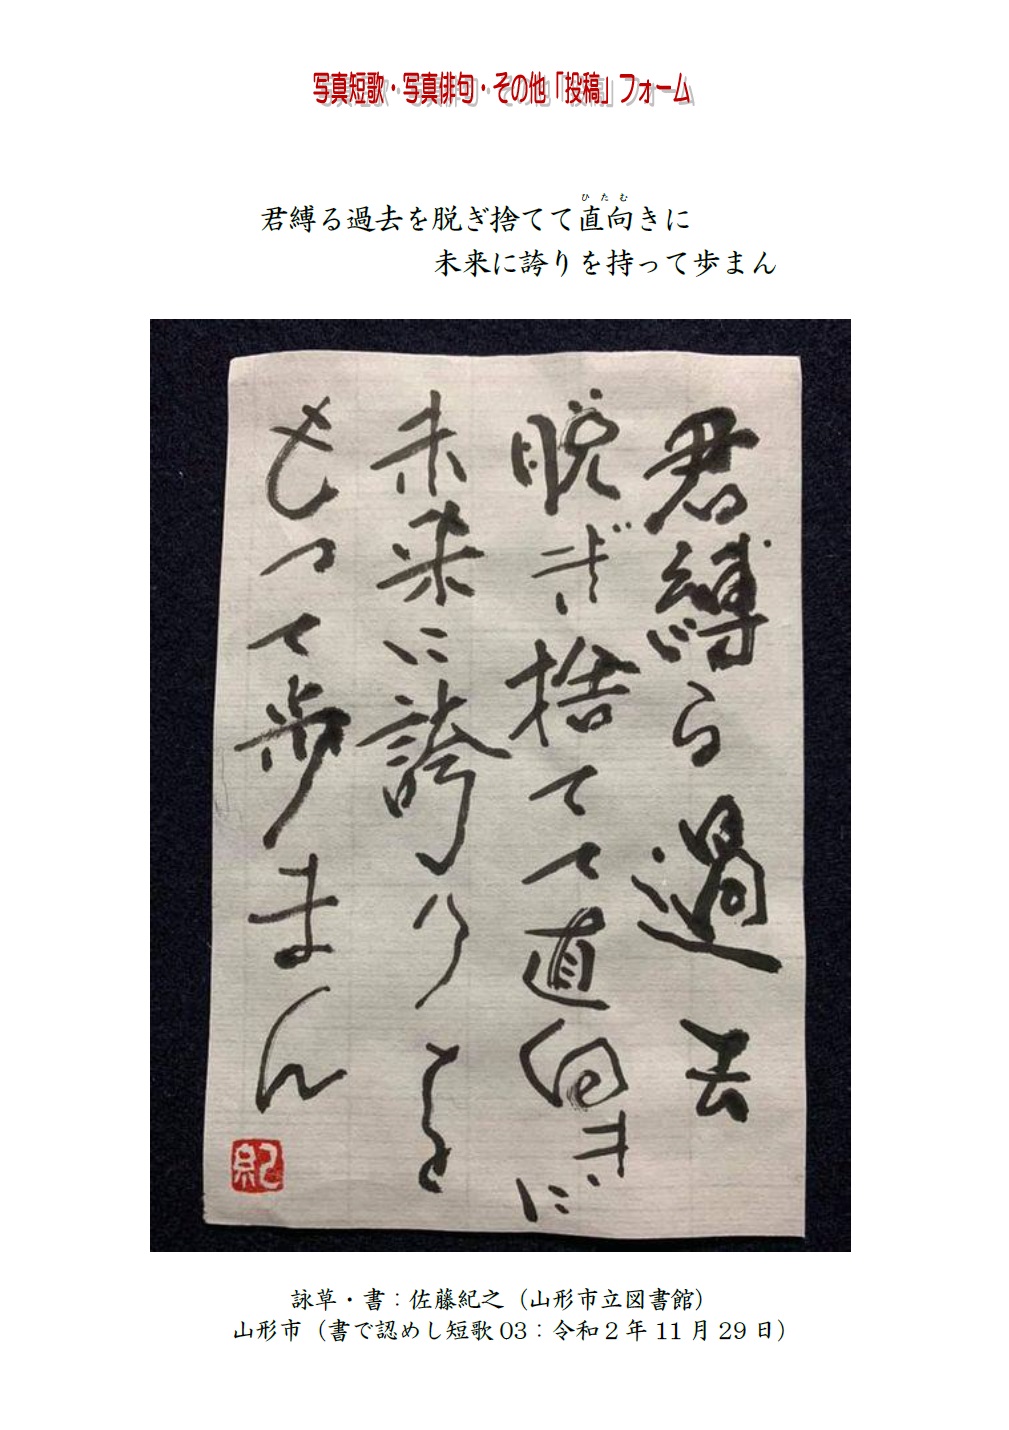 写真短歌・写真俳句・その他「投稿」フォーム
ひたむ
君縛る過去を脱ぎ捨てて直向きに
未来に誇りを持って歩まん
君縛る過去
脱ぎ捨てて直向きに
未来に誇りを
もって歩まん
紀
詠草・書：佐藤紀之（山形市立図書館）
山形市（書で認めし短歌03：令和2年11月29日）